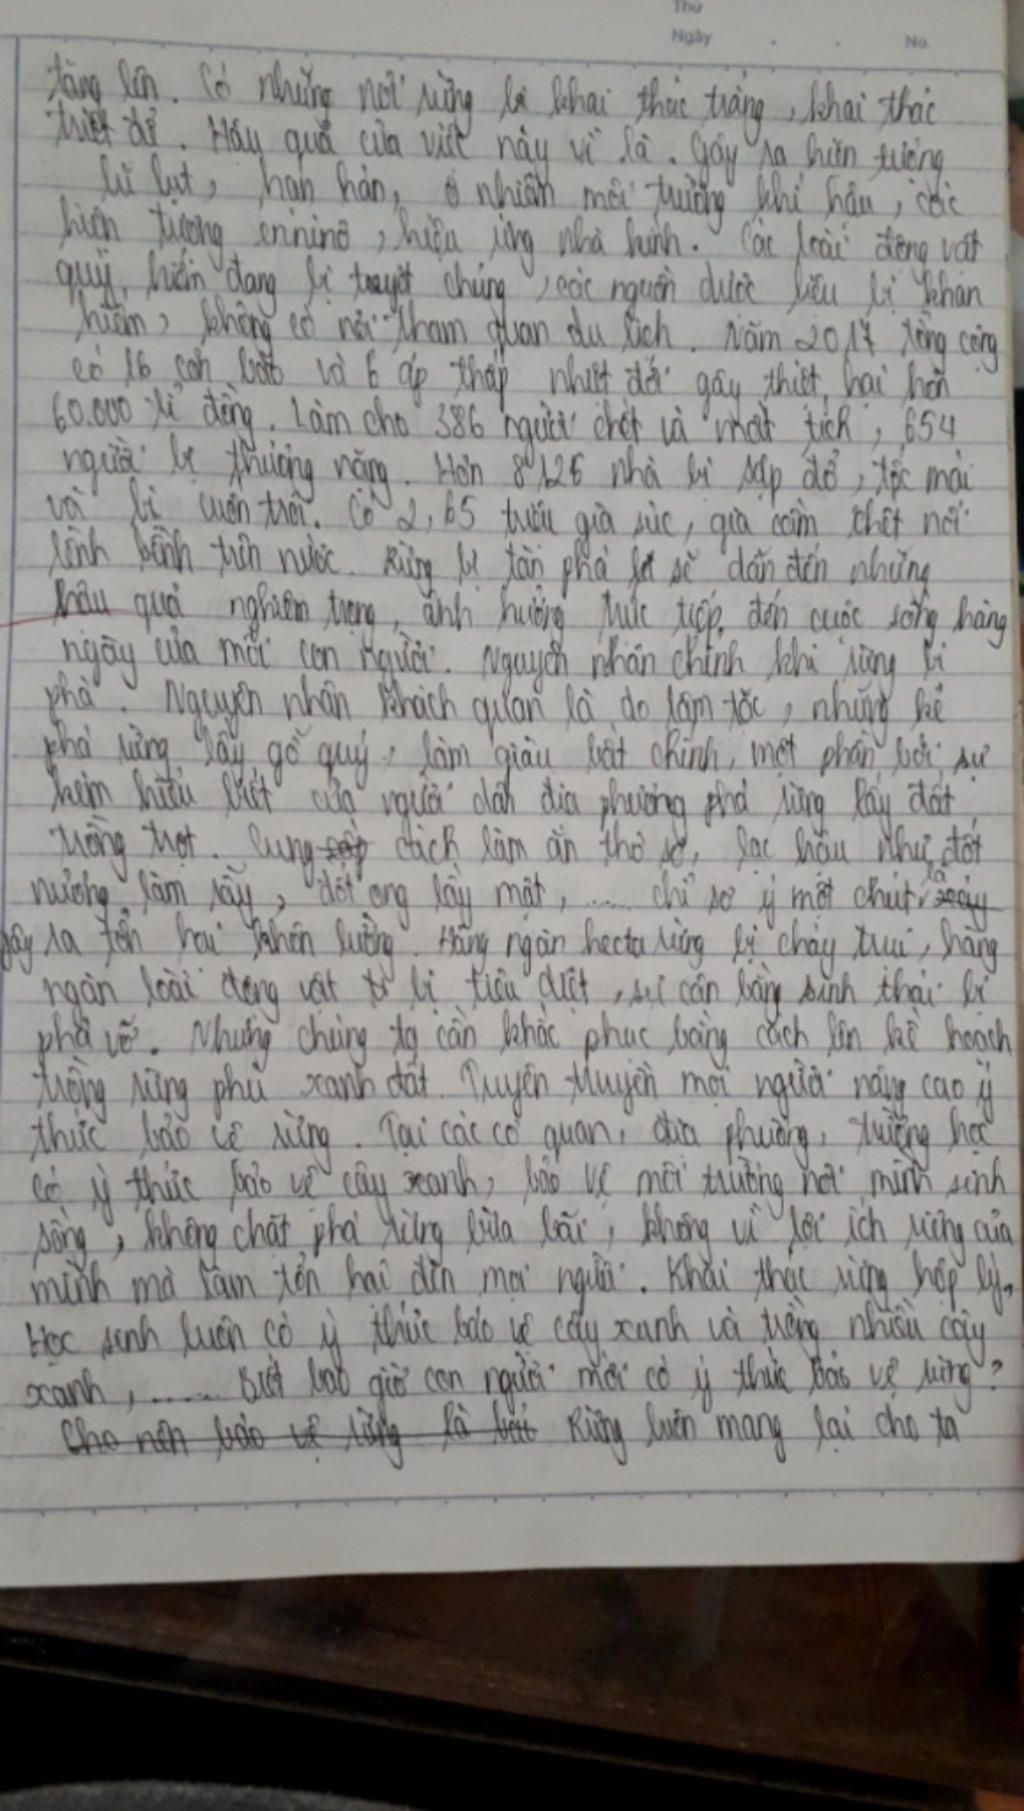 Thứ
Ngày . . No.
tăng lên. Có những nơi rừng bị khai thác trắng, khai thác
triệt để. Hậu quả của việc này vì là. Gây ra hiện tượng
lũ lụt, hạn hán, ô nhiễm môi trường khí hậu, các
hiện tượng ennino, hiệu ứng nhà kính. Các loài động vật
quý hiếm đang bị tuyệt chủng, các nguồn dược liệu bị khan
hiếm, không có nơi tham quan du lịch. Năm 2017 tổng cộng
có 16 cơn bão và 6 áp thấp nhiệt đới gây thiệt hại hơn
60.000 tỉ đồng. Làm cho 386 người chết và mất tích, 654
người bị thương nặng. Hơn 8126 nhà bị sập đổ, tốc mái
và bị cuốn trôi. Có 2,65 triệu gia súc, gia cầm chết nổi
lềnh bềnh trên nước. Rừng bị tàn phá sẽ dẫn đến những
hậu quả nghiêm trọng, ảnh hưởng trực tiếp, đến cuộc sống hàng
ngày của mỗi con người. Nguyên nhân chính khi rừng bị
phá. Nguyên nhân khách quan là do lâm tặc, những kẻ
phá rừng lấy gỗ quý, làm giàu bất chính, một phần bởi sự
kém hiểu biết của người dân địa phương phá rừng lấy đất
trồng trọt. Cung cách làm ăn thô sơ, lạc hậu như đốt
nương làm rẫy, đốt ong lấy mật, ..... chỉ sơ ý một chút là
gây ra tổn hại khôn lường. Hàng ngàn hecta rừng bị cháy trụi, hàng
ngàn loài động vật bị tiêu diệt, sự cân bằng sinh thái bị
phá vỡ. Nhưng chúng ta cần khắc phục bằng cách lên kế hoạch
trồng rừng phủ xanh đất. Tuyên truyền mọi người nâng cao ý
thức bảo vệ rừng. Tại các cơ quan, địa phương, trường học
có ý thức bảo vệ cây xanh, bảo vệ môi trường nơi mình sinh
sống, không chặt phá rừng bừa bãi, không vì lợi ích riêng của
mình mà làm tổn hại đến mọi người. Khai thác rừng hợp lý,
Học sinh luôn có ý thức bảo vệ cây xanh và trồng nhiều cây
xanh, ...... Biết bao giờ con người mới có ý thức bảo vệ rừng?
Cho nên bảo vệ rừng là Rừng luôn mang lại cho ta